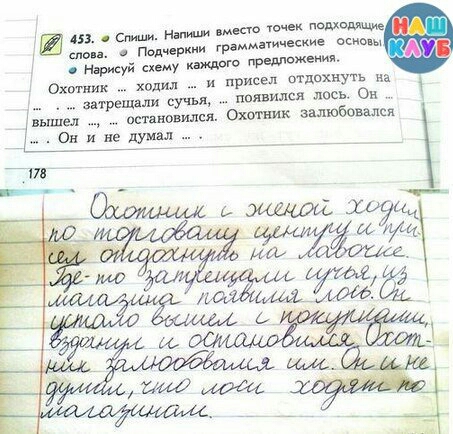 НАШ
КЛУБ
453. Спиши. Напиши вместо точек подходящие
слова. Подчеркни грамматические основы
Нарисуй схему каждого предложения.
Охотник ... ходил ... и присел отдохнуть на
... . ... затрещали сучья, ... появился лось. Он ...
вышел ..., ... остановился. Охотник залюбовался
... . Он и не думал ... .
178
Охотник с женой ходил
по торговому центру и при
сел отдохнуть на лавочке.
Где-то затрещали сучья, из
магазина появился лось. Он
устало вышел с покупками,
вздогнул и остановился. Охот-
ник залюбовался им. Он и не
думал, что лоси ходят по
магазинам.